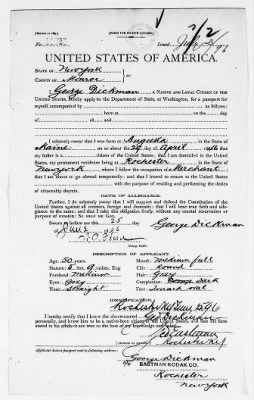 [FORM FOR NATIVE CITIZEN.]
Issued
UNITED STATES OF AMERICA.
STATE OF New York
COUNTY OF Monroe
I, George Dickman, A NATIVE AND LOYAL CITIZEN OF THE
UNITED STATES, hereby apply to the Department of State, at Washington, for a passport for
myself accompanied by
born at on the day of
I solemnly swear that I was born at Augusta in the State of
Maine on the day of April
my father is a citizen of the United States; that I am domiciled in the United
States, my permanent residence being at Rochester in the State of
New York where I follow the occupation of Merchant that I
am about to go abroad temporarily; and that I intend to return to the United
States with the purpose of residing and performing the duties
of citizenship therein.
OATH OF ALLEGIANCE.
Further, I do solemnly swear that I will support and defend the Constitution of the
United States against all enemies, foreign and domestic; that I will bear true faith and
allegiance to the same; and that I take this obligation freely, without any mental reservation
or purpose of evasion: So help me God.
George Dickman
Notary Public.
DESCRIPTION OF APPLICANT.
Age: 50 years. Mouth: medium full
Stature: 5 feet 9 inches, Eng. Chin: Round
Forehead: medium Hair: Grey
Eyes: Grey Complexion: Dark
Nose: Straight Face:
IDENTIFICATION.
Rochester 1896
I hereby certify that I know the above-named George Dickman
personally, and know him to be a native-born citizen of the United States, and that the facts
stated in his affidavit are true to the best of my knowledge and belief.
Rochester N.Y.
Applicant desires passport sent to following address:
George Dickman
EASTMAN KODAK CO.
Rochester
New York